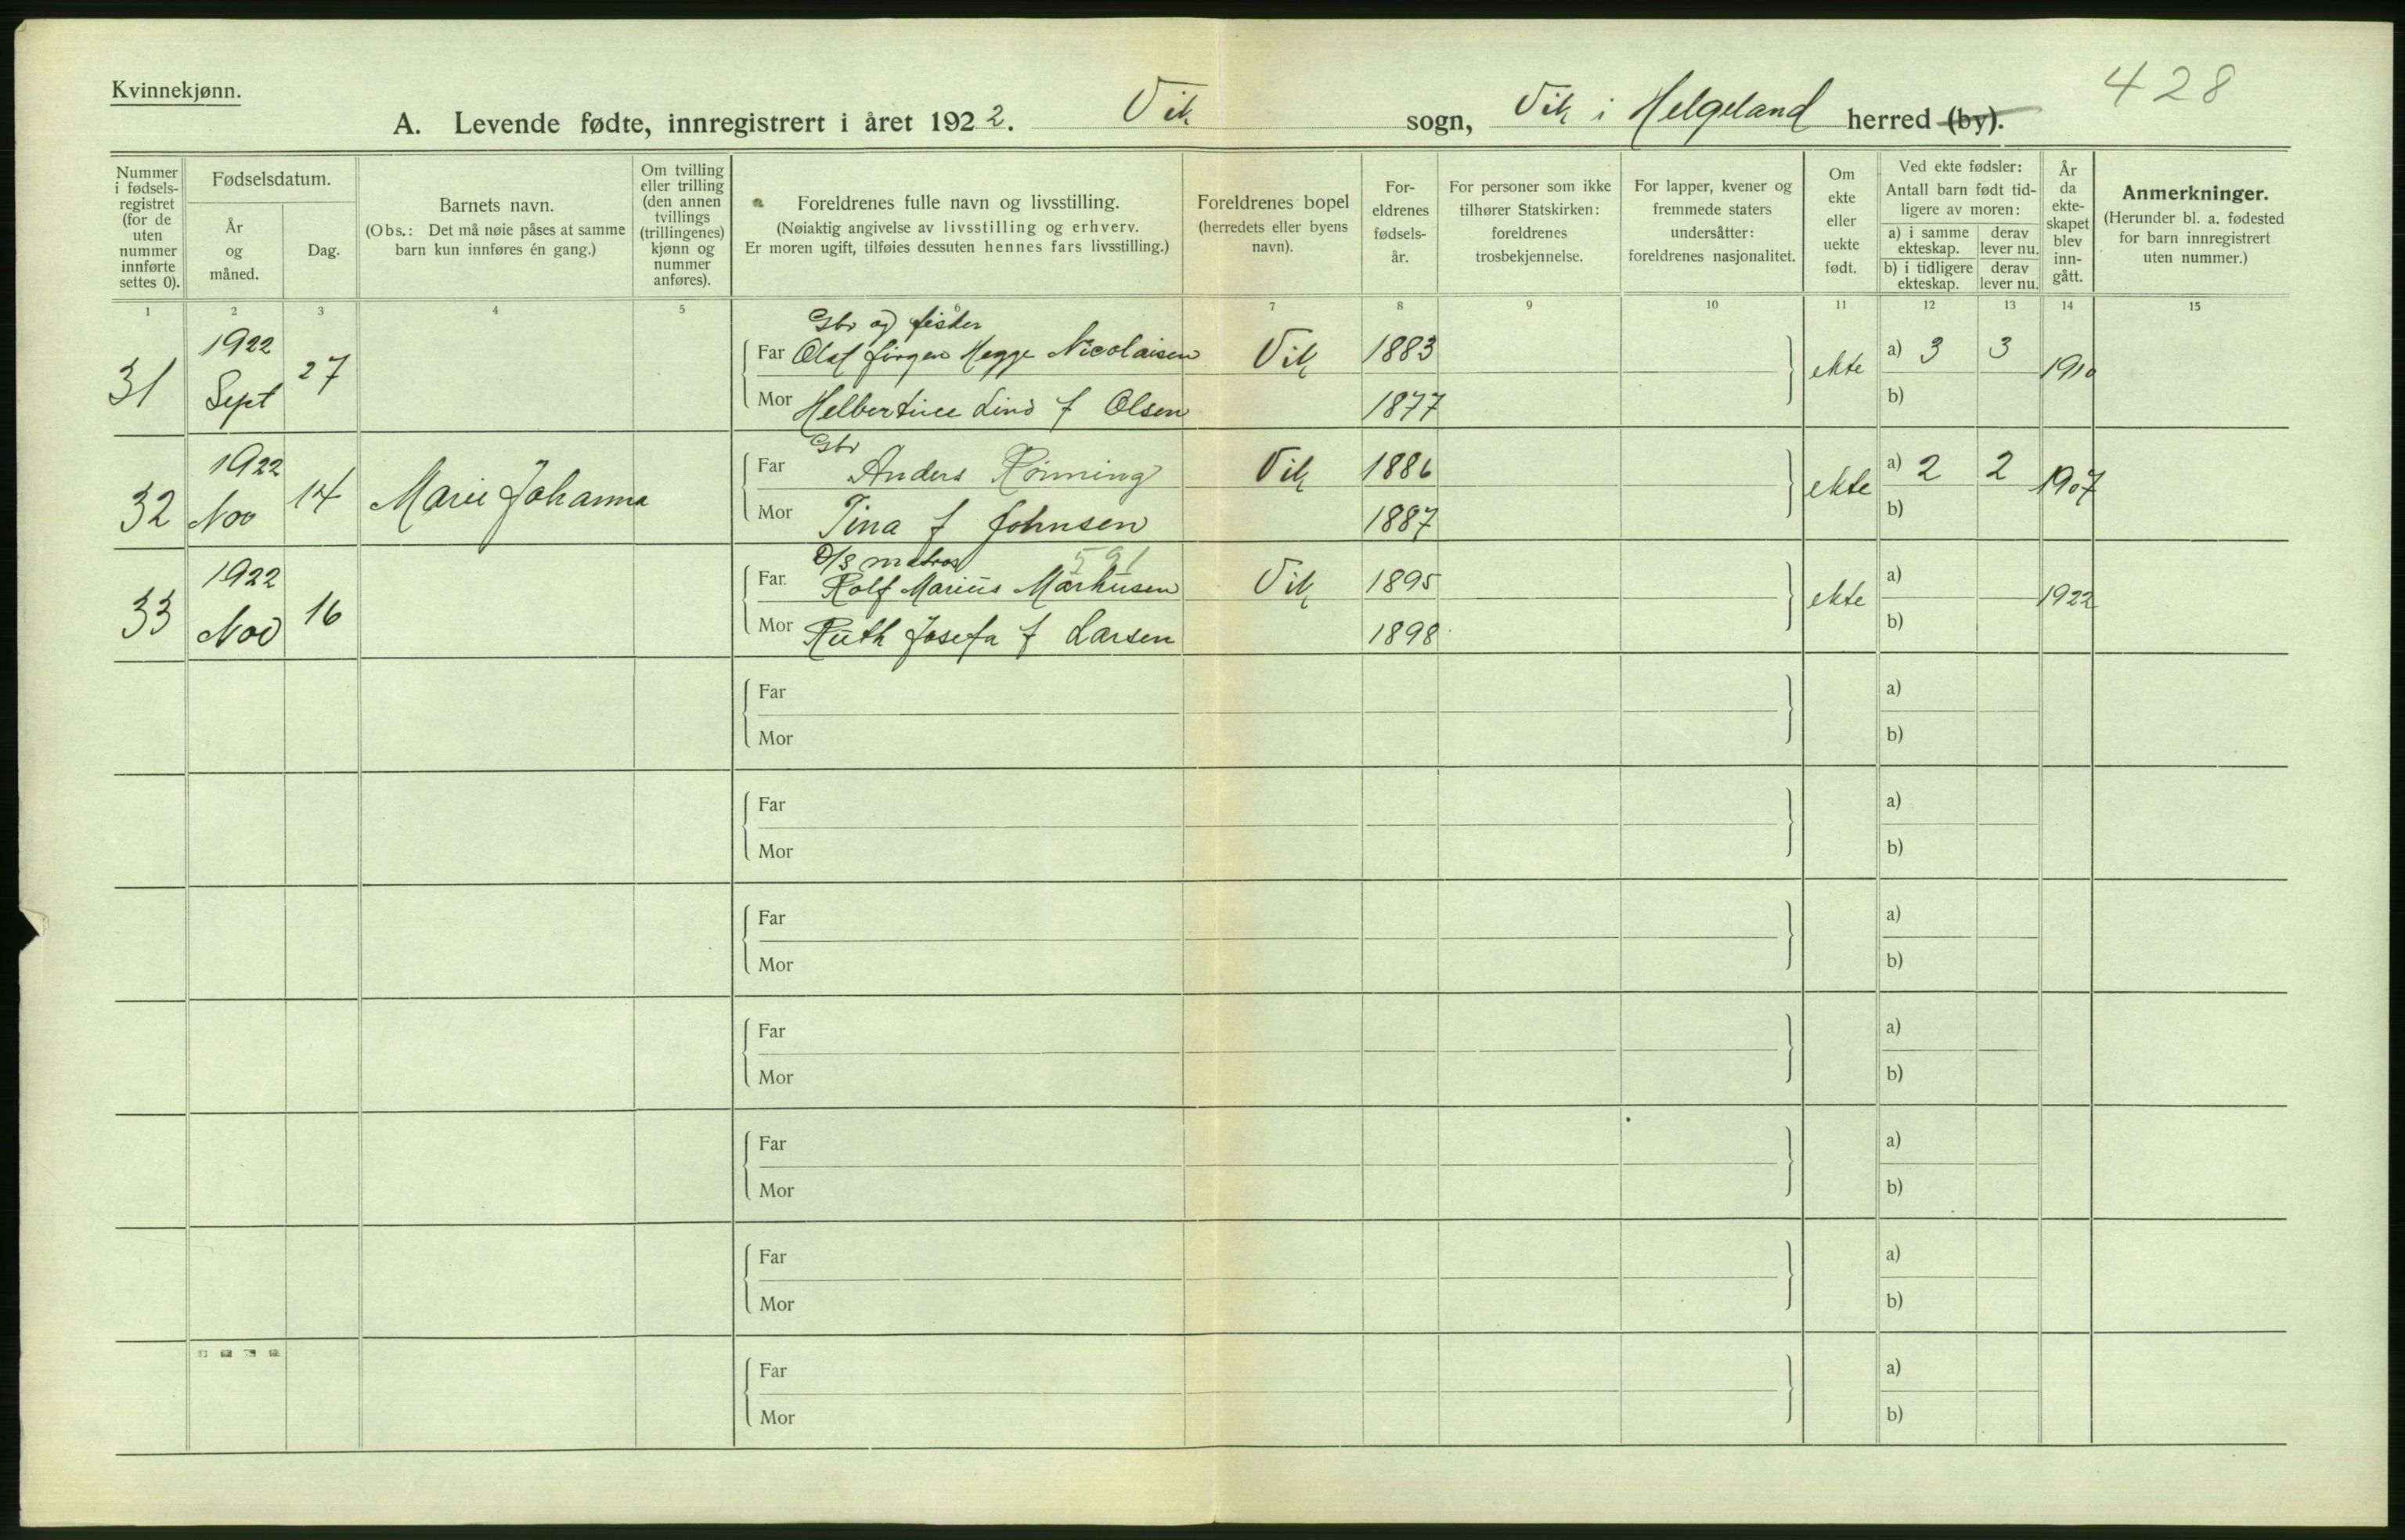 Kvinnekjønn.
428
A. Levende fødte, innregistrert i året 1922. Vik sogn, Vik i Helgeland herred (by).
Nummer i fødsels-registret (for de uten nummer innførte settes 0).
Fødselsdatum.
År og måned.
Dag.
Barnets navn.
(Obs.: Det må nøie påses at samme barn kun innføres én gang.)
Om tvilling eller trilling (den annen tvillings (trillingenes) kjønn og nummer anføres).
Foreldrenes fulle navn og livsstilling.
(Nøiaktig angivelse av livsstilling og erhverv.
Er moren ugift, tilføies dessuten hennes fars livsstilling.)
Foreldrenes bopel
(herredets eller byens navn).
For-eldrenes fødsels-år.
For personer som ikke tilhører Statskirken: foreldrenes trosbekjennelse.
For lapper, kvener og fremmede staters undersåtter: foreldrenes nasjonalitet.
Om ekte eller uekte født.
Ved ekte fødsler:
Antall barn født tid-ligere av moren:
a) i samme ekteskap.
derav lever nu.
b) i tidligere ekteskap.
derav lever nu.
År da ekte-skapet blev inn-gått.
Anmerkninger.
(Herunder bl. a. fødested for barn innregistrert uten nummer.)
1 2 3 4 5 6 7 8 9 10 11 12 13 14 15
Gbr og fisker
31 1922 Sept 27 Far Olaf Jørgen Hegge Nicolaisen Vik 1883 ekte a) 3 3 1910
Mor Helbertine Lind f Olsen 1877 b)
Gbr
32 1922 Nov 14 Marie Johanna Far Anders Rønning Vik 1886 ekte a) 2 2 1907
Mor Tina f Johnsen 1887 b)
D/S matros 591
33 1922 Nov 16 Far Rolf Marius Markusen Vik 1895 ekte a) 1922
Mor Ruth Josefa f Larsen 1898 b)
Far a)
Mor b)
Far a)
Mor b)
Far a)
Mor b)
Far a)
Mor b)
Far a)
Mor b)
Far a)
Mor b)
Far a)
Mor b)